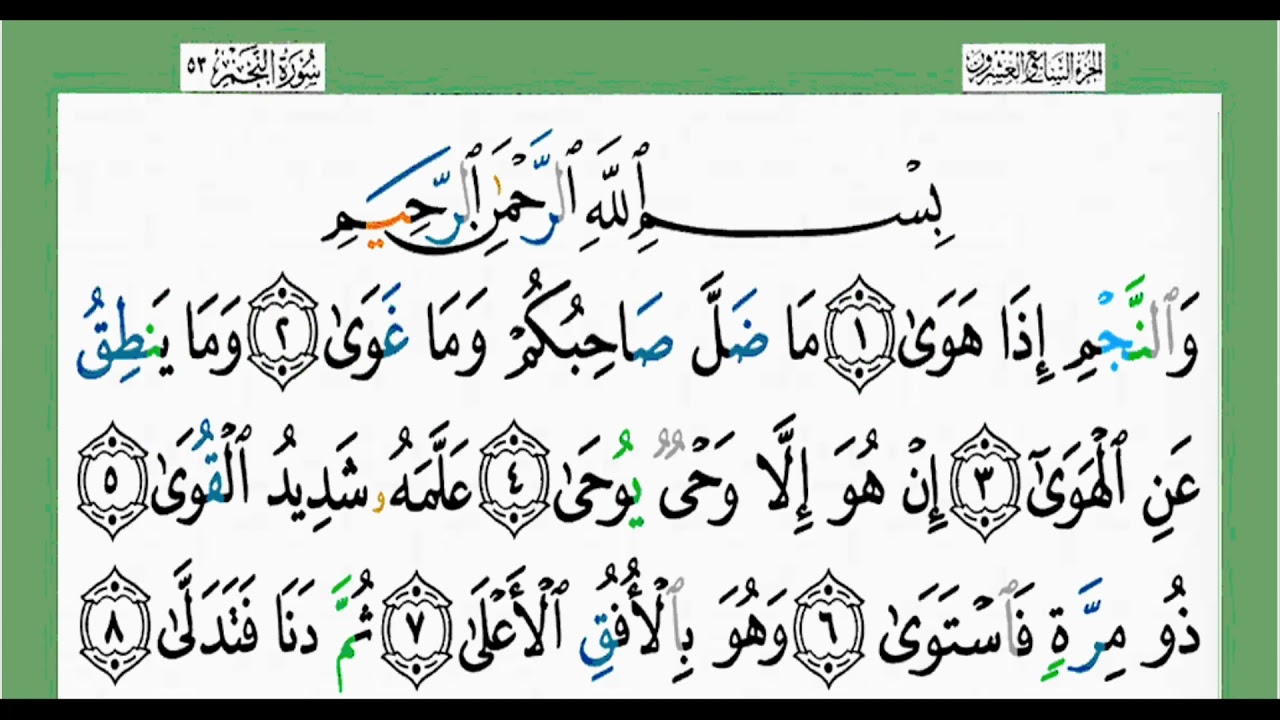 الجزء السابع والعشرون
سورة النجم ٥٣
بِسْمِ ٱللَّهِ ٱلرَّحْمَٰنِ ٱلرَّحِيمِ
وَٱلنَّجْمِ إِذَا هَوَىٰ ١ مَا ضَلَّ صَاحِبُكُمْ وَمَا غَوَىٰ ٢ وَمَا يَنطِقُ
عَنِ ٱلْهَوَىٰٓ ٣ إِنْ هُوَ إِلَّا وَحْىٌ يُوحَىٰ ٤ عَلَّمَهُۥ شَدِيدُ ٱلْقُوَىٰ ٥
ذُو مِرَّةٍ فَٱسْتَوَىٰ ٦ وَهُوَ بِٱلْأُفُقِ ٱلْأَعْلَىٰ ٧ ثُمَّ دَنَا فَتَدَلَّىٰ ٨